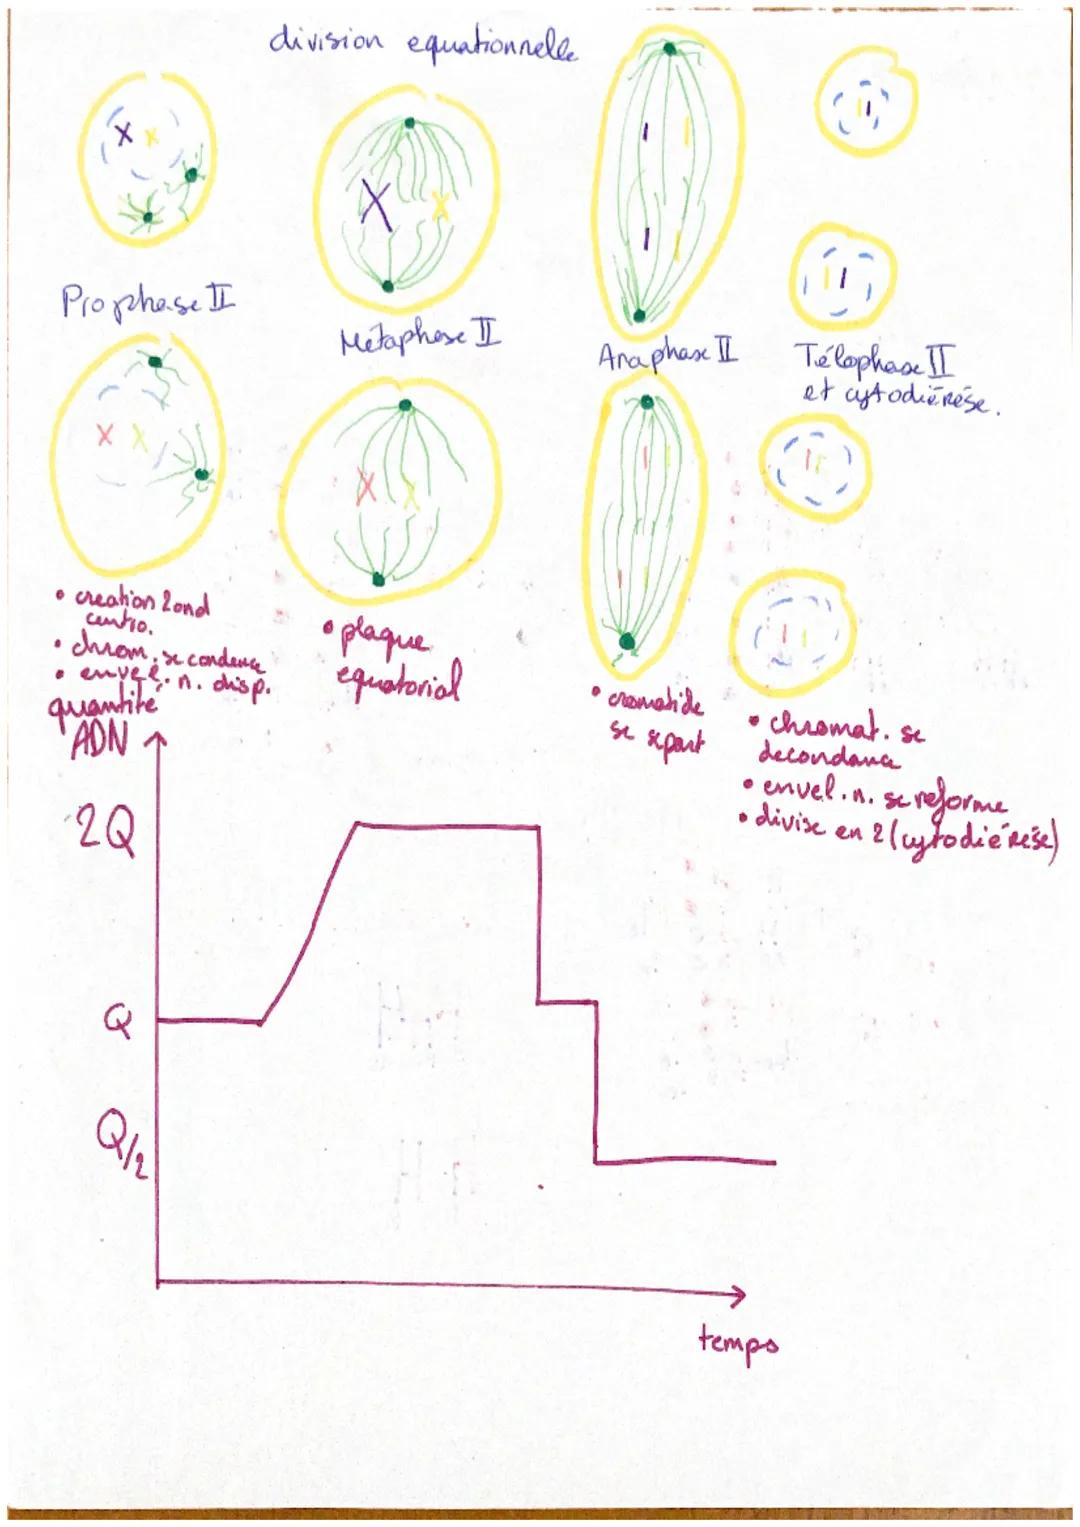 division equationnelle
Prophase II
Métaphase II
Anaphase II
Télophase II
et cytodiérèse.
• creation 2ond
centro.
• chrom. se condence
• envel. n. disp.
• plaque
equatorial
• cromatide
se sépart
• chromat. se
decondance
• envel. n. se reforme
• divise en 2 (cytodiérèse)
quantité
ADN
2Q
Q
Q/2
temps